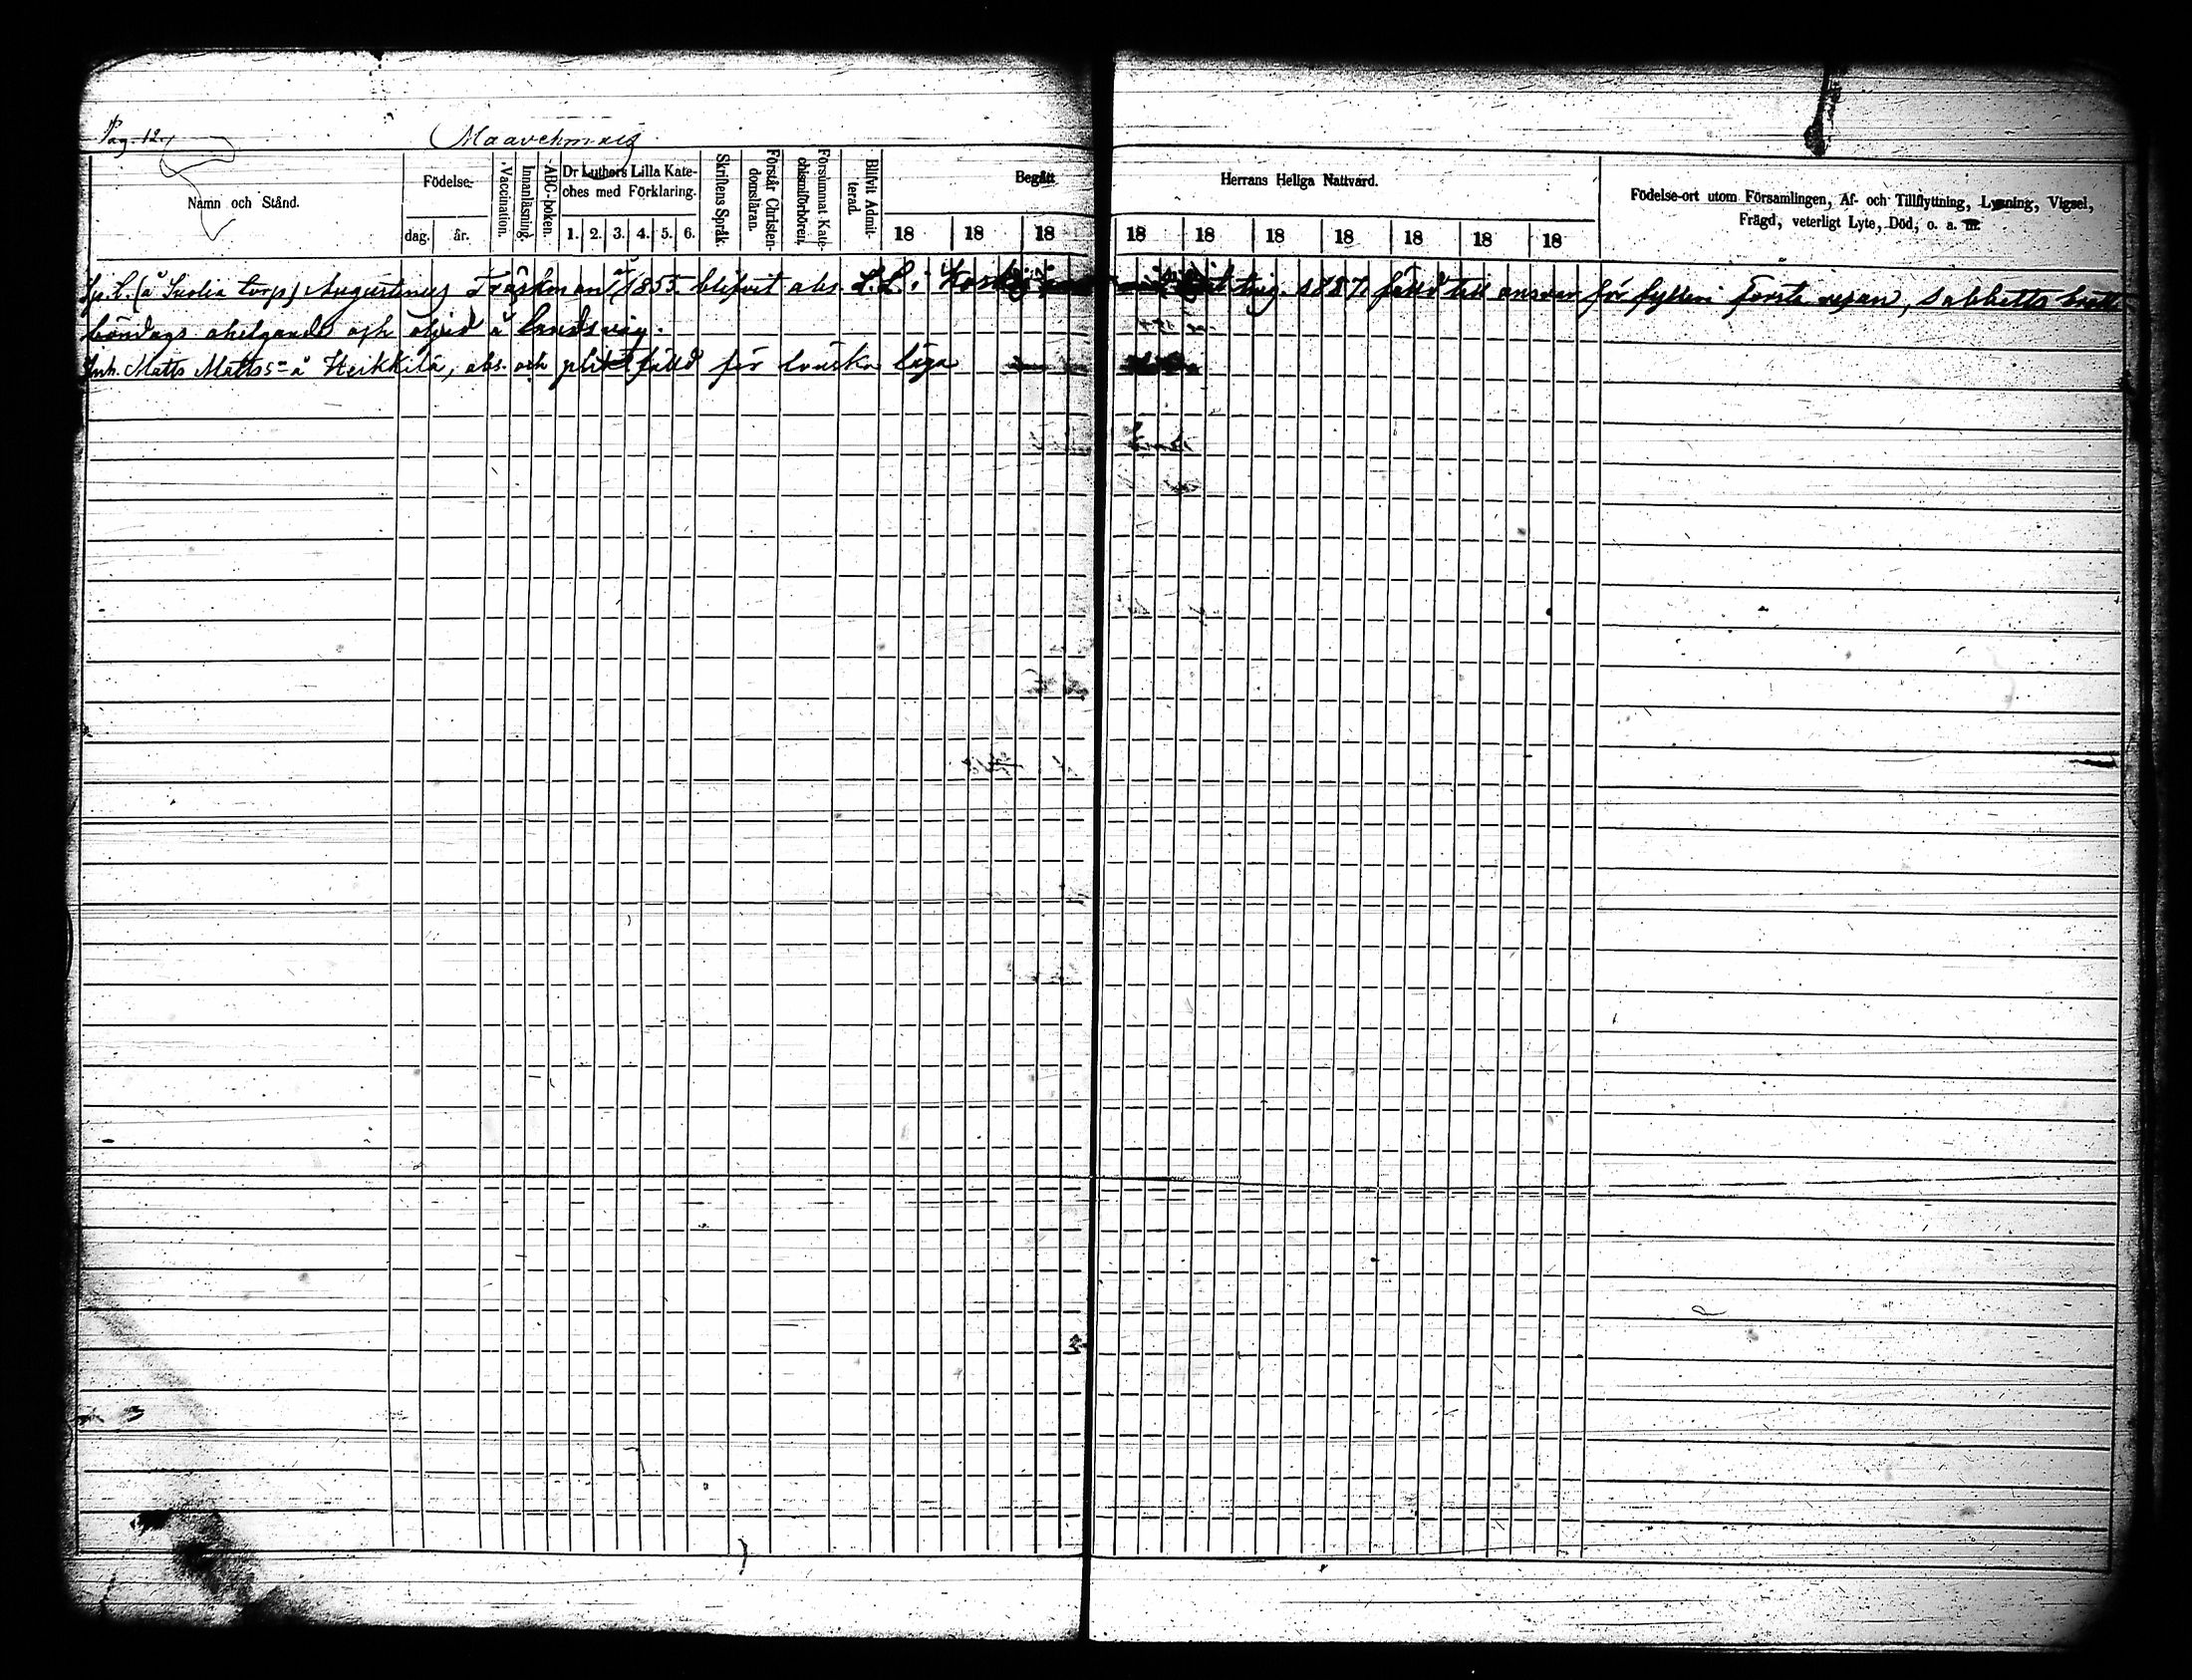 Pag. 12.
Namn och Stånd.
Födelse-
dag.
år.
Vaccination.
Innanläsning.
ABC-boken.
Dr Luthers Lilla Kate-
ches med Förklaring.
1. 2. 3. 4. 5. 6.
Skriftens Språk.
Förstår Christen-
domsläran.
Försummat Kate-
chismiförhören.
Blifvit Admit-
terad.
Begått
Herrans Heliga Nattvard.
18 18 18 18 18 18 18 18 18 18
Födelse-ort utom Församlingen, Af- och Tillflyttning, Lysning, Vigsel,
Frägd, veterligt Lyte, Död, o. a. m.
torp) Augustinus 1855. blifvit abs. ting. 1887. fälld till ansvar för fylleri första resan, sabbatts
böndags ohelgande och oljud å landsväg.
Inh. Matts Mattss:n å Heikkilä, abs. och fälld för